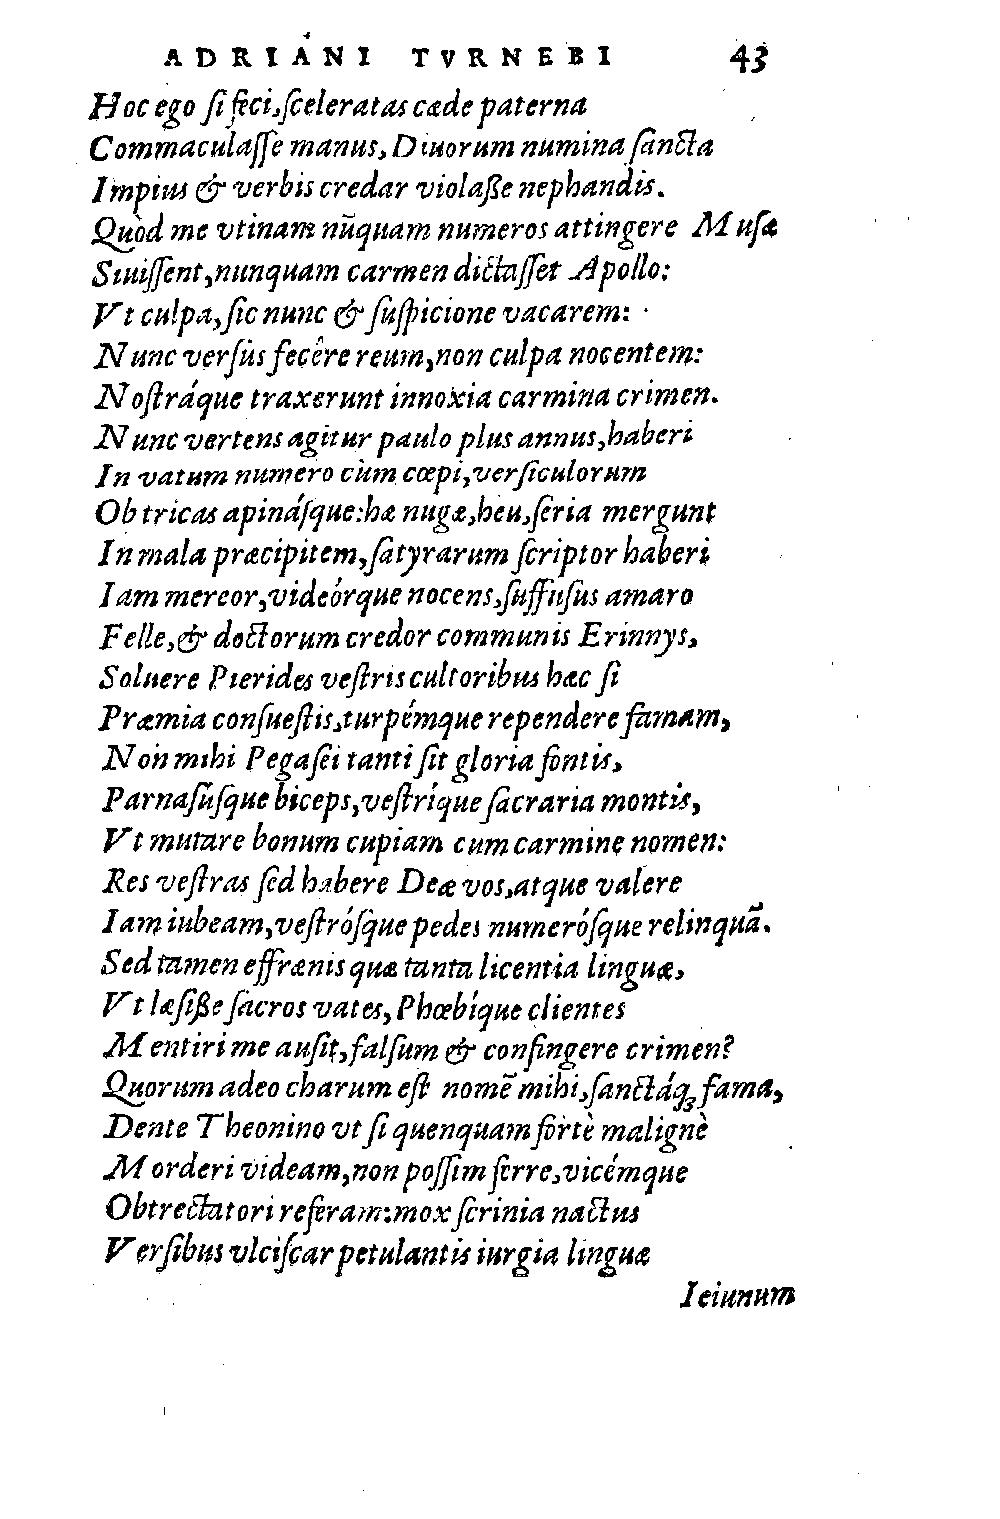 ADRIANI TVRNEBI 43
Hoc ego ſi feci, ſceleratas cæde paterna
Commaculaſſe manus, Diuorum numina ſancta
Impius & verbis credar violaße nephandis.
Quòd me vtinam nūquam numeros attingere Muſæ
Siuiſſent, nunquam carmen dictaſſet Apollo:
Vt culpa, ſic nunc & ſuſpicione vacarem:
Nunc verſùs fecêre reum, non culpa nocentem:
Noſtráque traxerunt innoxia carmina crimen.
Nunc vertens agitur paulo plus annus, haberi
In vatum numero cùm cœpi, verſiculorum
Ob tricas apináſque: hæ nugæ, heu, ſeria mergunt
In mala præcipitem, ſatyrarum ſcriptor haberi
Iam mereor, videórque nocens, ſuffuſus amaro
Felle, & doctorum credor communis Erinnys,
Soluere Pierides veſtris cultoribus hæc ſi
Præmia conſueſtis, turpémque rependere famam,
Non mihi Pegaſei tanti ſit gloria fontis,
Parnaſúſque biceps, veſtríque ſacraria montis,
Vt mutare bonum cupiam cum carmine nomen:
Res veſtras ſed habere Deæ vos, atque valere
Iam iubeam, veſtróſque pedes numeróſque relinquā.
Sed tamen effrænis quæ tanta licentia linguæ,
Vt læſiße ſacros vates, Phœbíque clientes
Mentiri me auſit, falſum & confingere crimen?
Quorum adeo charum eſt nomē mihi, ſanctáq; fama,
Dente Theonino vt ſi quenquam fortè malignè
Morderi videam, non poſſim ferre, vicémque
Obtrectatori referam: mox ſcrinia nactus
Verſibus vlciſcar petulantis iurgia linguæ
Ieiunum